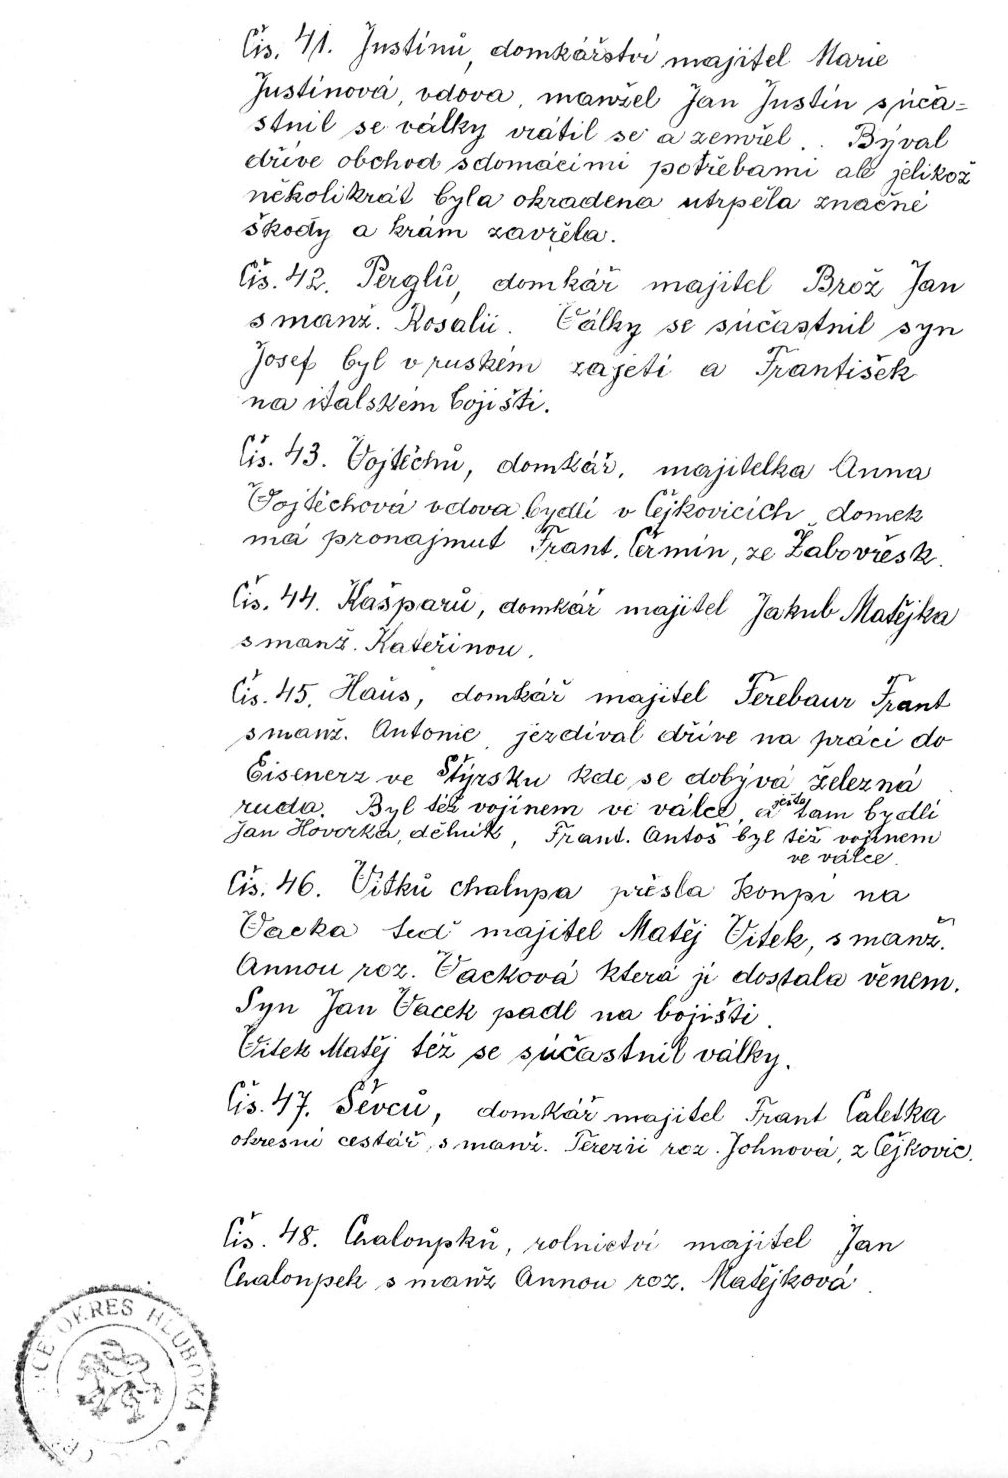 Čís. 41. Justinů, domkářství majitel Marie
Justinová, vdova, manžel Jan Justin súča=
stnil se války vrátil se a zemřel.. Býval
dříve obchod s domácími potřebami ale jelikož
několikrát byla okradena utrpěla značné
škody a krám zavřela.
Čís. 42. Perglů, domkář majitel Brož Jan
s manž. Rosalii. Války se súčastnil syn
Josef byl v ruském zajetí a František
na italském bojišti.
Čís. 43. Vojtěchů, domkář, majitelka Anna
Vojtěchová vdova bydlí v Čejkovicích domek
má pronajmut Frant. Čermín, ze Žabovřesk.
Čís. 44. Kašparů, domkář majitel Jakub Matějka
s manž. Kateřinou.
Čís. 45. Haus, domkář majitel Ferebaur Frant
s manž. Antonie, jezdíval dříve na práci do
Eisenerz ve Štýrsku kde se dobývá železná
ruda. Byl též vojínem ve válce, a ještě tam bydlí
Jan Hovorka, dělník, Frant. Antoš byl též vojínem
ve válce.
Čís. 46. Vitků chalupa přešla koupí na
Vacka teď majitel Matěj Vitek, s manž.
Annou roz. Vacková která ji dostala věnem.
Syn Jan Vacek padl na bojišti.
Vitek Matěj též se súčastnil války.
Čís. 47. Ševců, domkář majitel Frant Caletka
okresní cestář, s manž. Terezii roz. Johnová, z Čejkovic.
Čís. 48. Chaloupků, rolnictví majitel Jan
Chaloupek s manž Annou roz. Matějková.
OKRES HLUBOKÁ